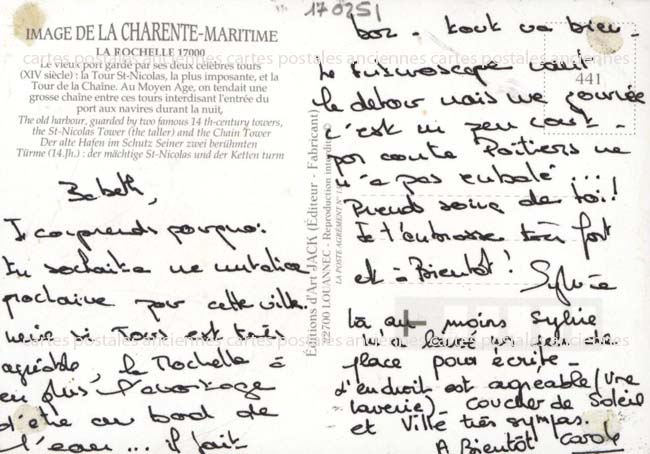 170251
IMAGE DE LA CHARENTE-MARITIME
LA ROCHELLE 17000
Le vieux port gardé par ses deux célèbres tours
(XIV siècle) : la Tour St-Nicolas, la plus imposante, et la
Tour de la Chaîne. Au Moyen Age, on tendait une
grosse chaîne entre ces tours interdisant l'entrée du
port aux navires durant la nuit,
The old harbour, guarded by two famous 14 th-century towers,
the St-Nicolas Tower (the taller) and the Chain Tower
Der alte Hafen im Schutz Seiner zwei berühmten
Türme (14.Jh.) : der mächtige St-Nicolas und der Ketten turm
Babeth,
Je comprends pourquoi
tu souhaites une mutation
prochaine pour cette ville.
mais si Tours est très
agréable, la Rochelle a
en plus l'avantage
d'être au bord de
l'eau... il fait
Éditions d'Art JACK (Éditeur - Fabricant)
22700 LOUANNEC - Reproduction interdite
LA POSTE AGREMENT N°
441
bon - tout va bien -
Le Futuroscope vaut
le détour mais une journée
c'est un peu court -
par contre Poitiers ne
m'a pas emballé ...
Prends soin de toi !
Je t'embrasse très fort
et à Bientôt !
Sylvie
là au moins Sylvie
m'a laissé un peu de
place pour écrire -
L'endroit est agréable (une
laverie) - coucher de Soleil
et Ville très sympas.
A Bientôt Carole
cartes postales anciennes cartes postales anciennes cartes postales anciennes
postales anciennes cartes postales anciennes cartes postales anciennes